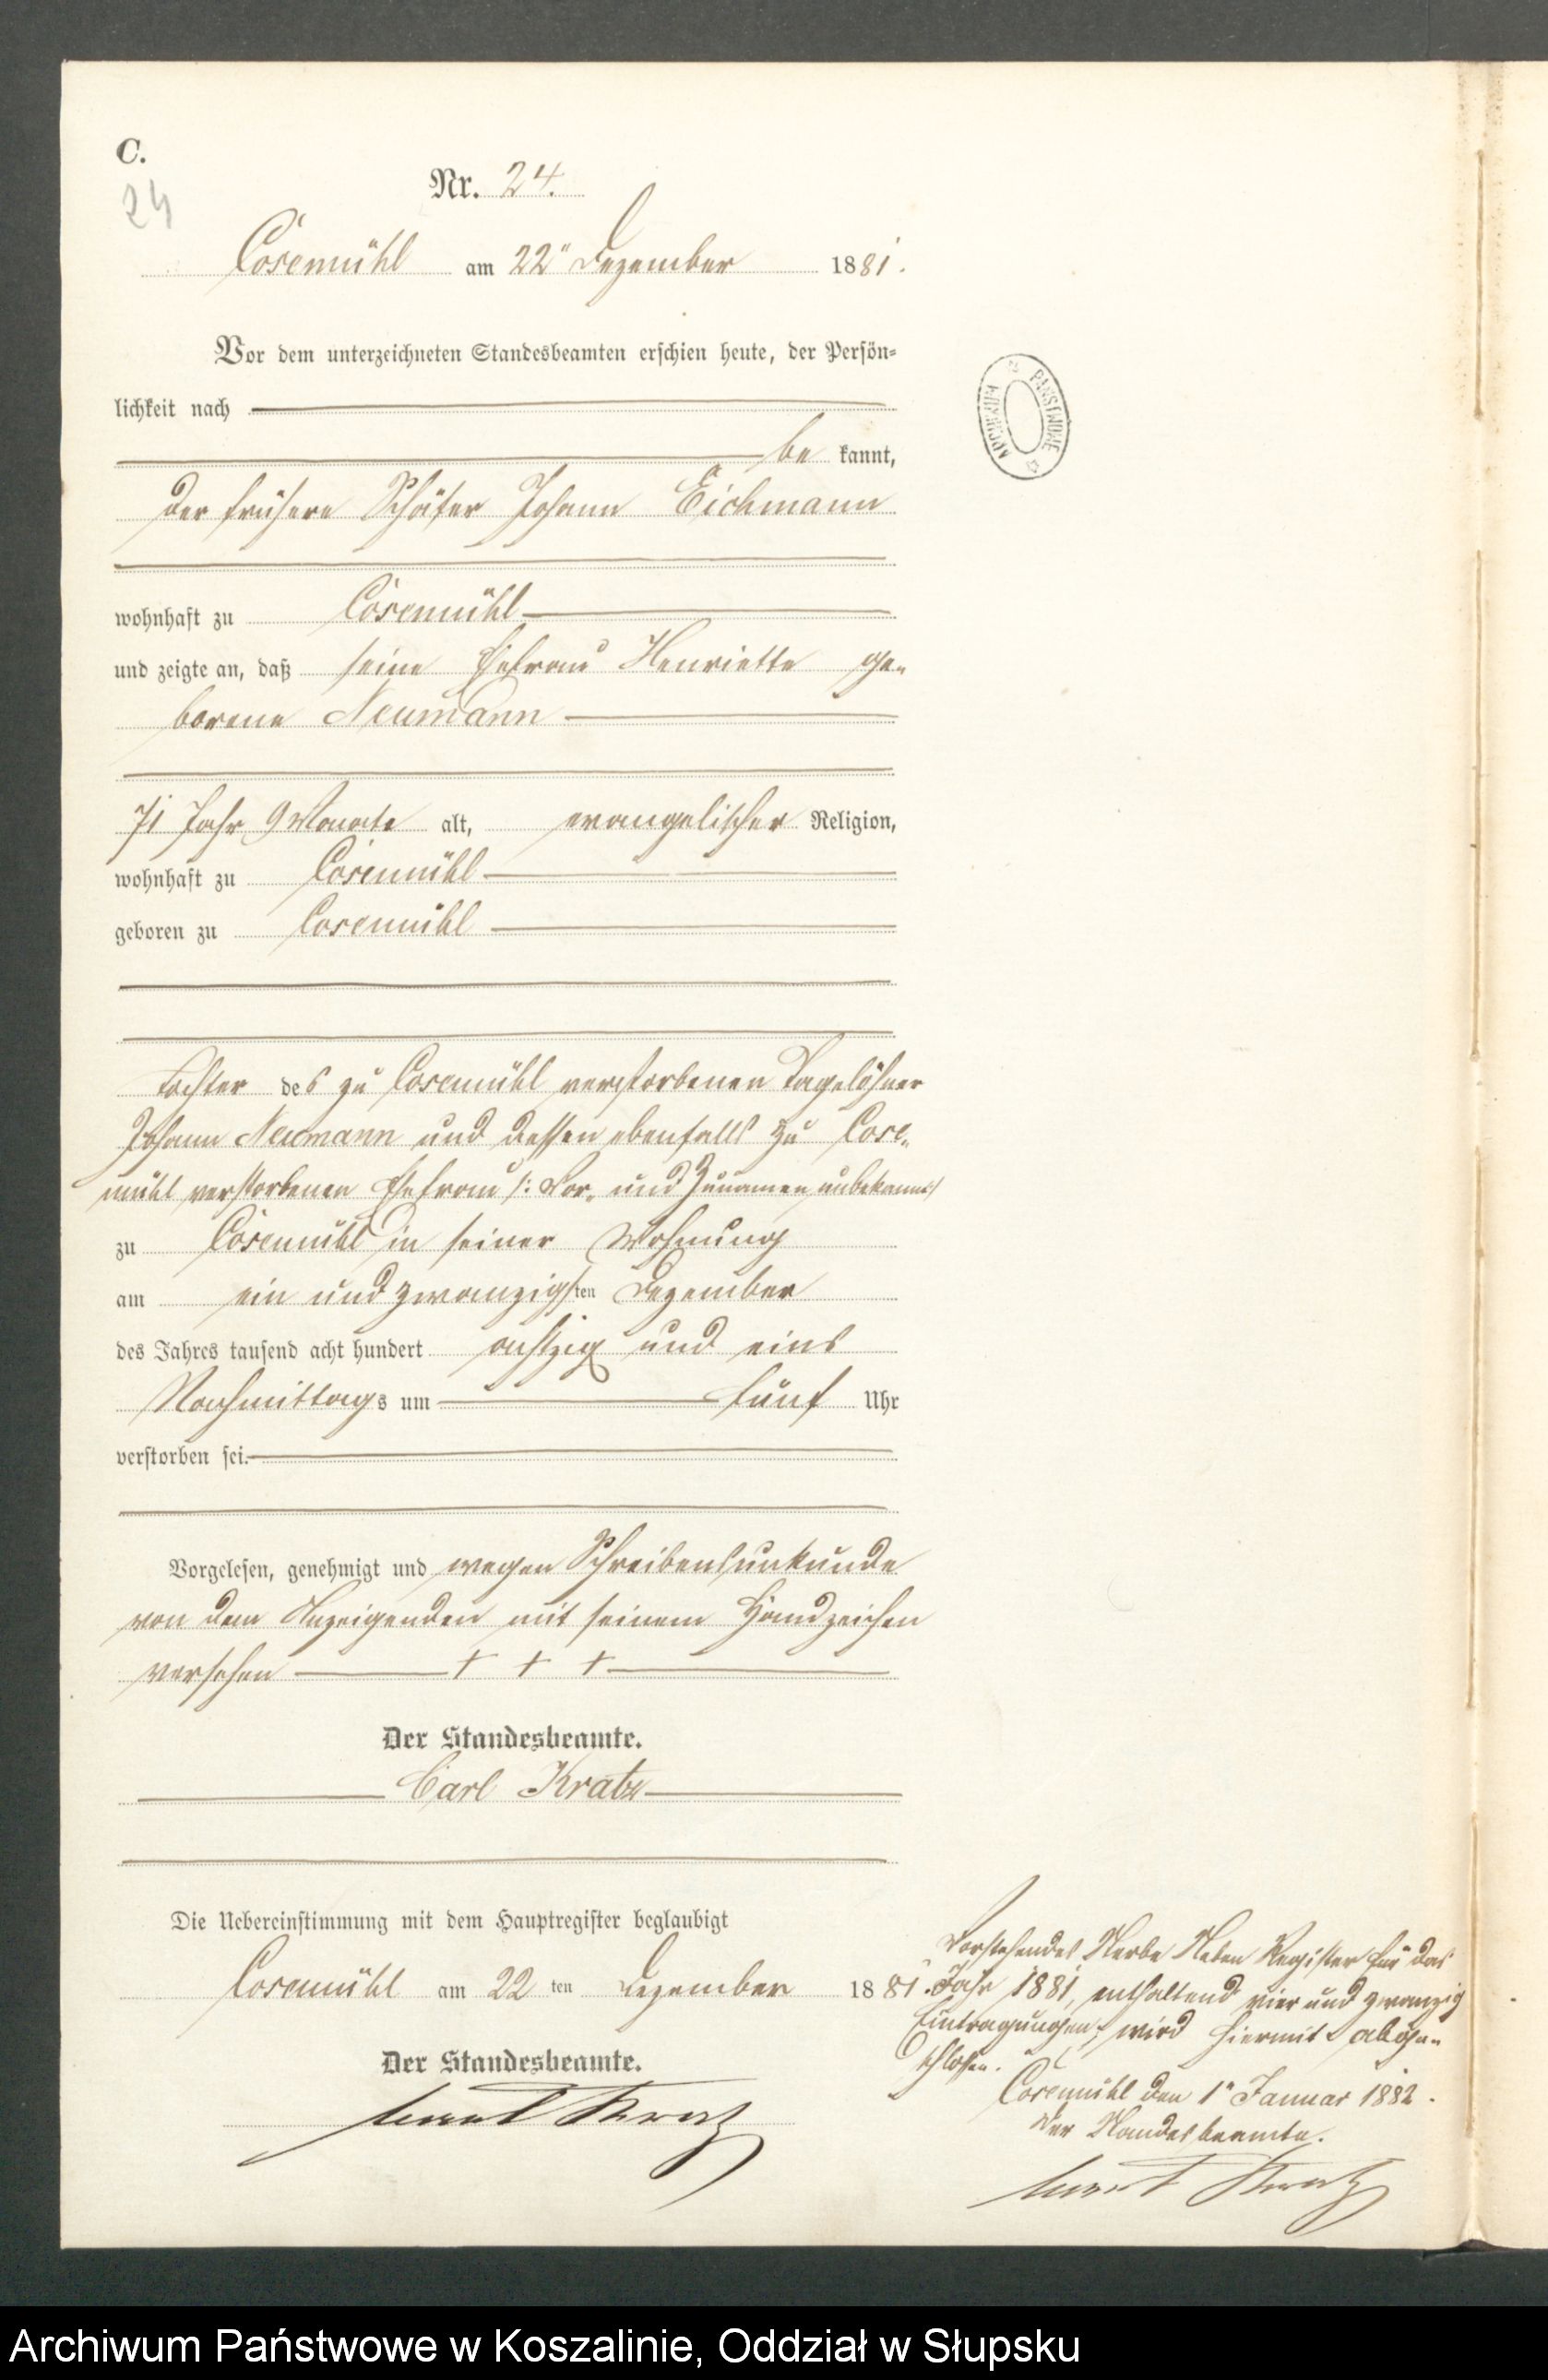 C.
24
Nr. 24.
Cosemühl am 22" Dezember 1881.
Vor dem unterzeichneten Standesbeamten erschien heute, der Persön-
lichkeit nach
be kannt,
der frühere Schäfer Johann Eichmann
wohnhaft zu Cosemühl
und zeigte an, daß seine Ehefrau Henriette ge-
borene Neumann
71 Jahr 9 Monate alt, evangelischer Religion,
wohnhaft zu Cosemühl
geboren zu Cosemühl
Tochter des zu Cosemühl verstorbenen Tagelöhner
Johann Neumann und dessen ebenfalls zu Cose-
mühl verstorbenen Ehefrau /: Vor- und Zunamen unbekannt/
zu Cosemühl in seiner Wohnung
am ein und zwanzigsten Dezember
des Jahres tausend acht hundert achtzig und eins
Nachmittags um fünf Uhr
verstorben sei.
Vorgelesen, genehmigt und wegen Schreibensunkunde
von dem Anzeigenden mit seinem Handzeichen
versehen + + +
Der Standesbeamte.
Carl Kratz
Die Uebereinstimmung mit dem Hauptregister beglaubigt
Cosemühl am 22 ten Dezember 1881.
Der Standesbeamte.
Carl Kratz
Vorstehendes Sterbe Neben Register für das
Jahr 1881, enthaltend vier und zwanzig
Eintragungen, wird hiermit abge-
schlossen.
Cosemühl den 1" Januar 1882.
Der Standesbeamte.
Carl Kratz
ARCHIWUM PAŃSTWOWE
Archiwum Państwowe w Koszalinie, Oddział w Słupsku